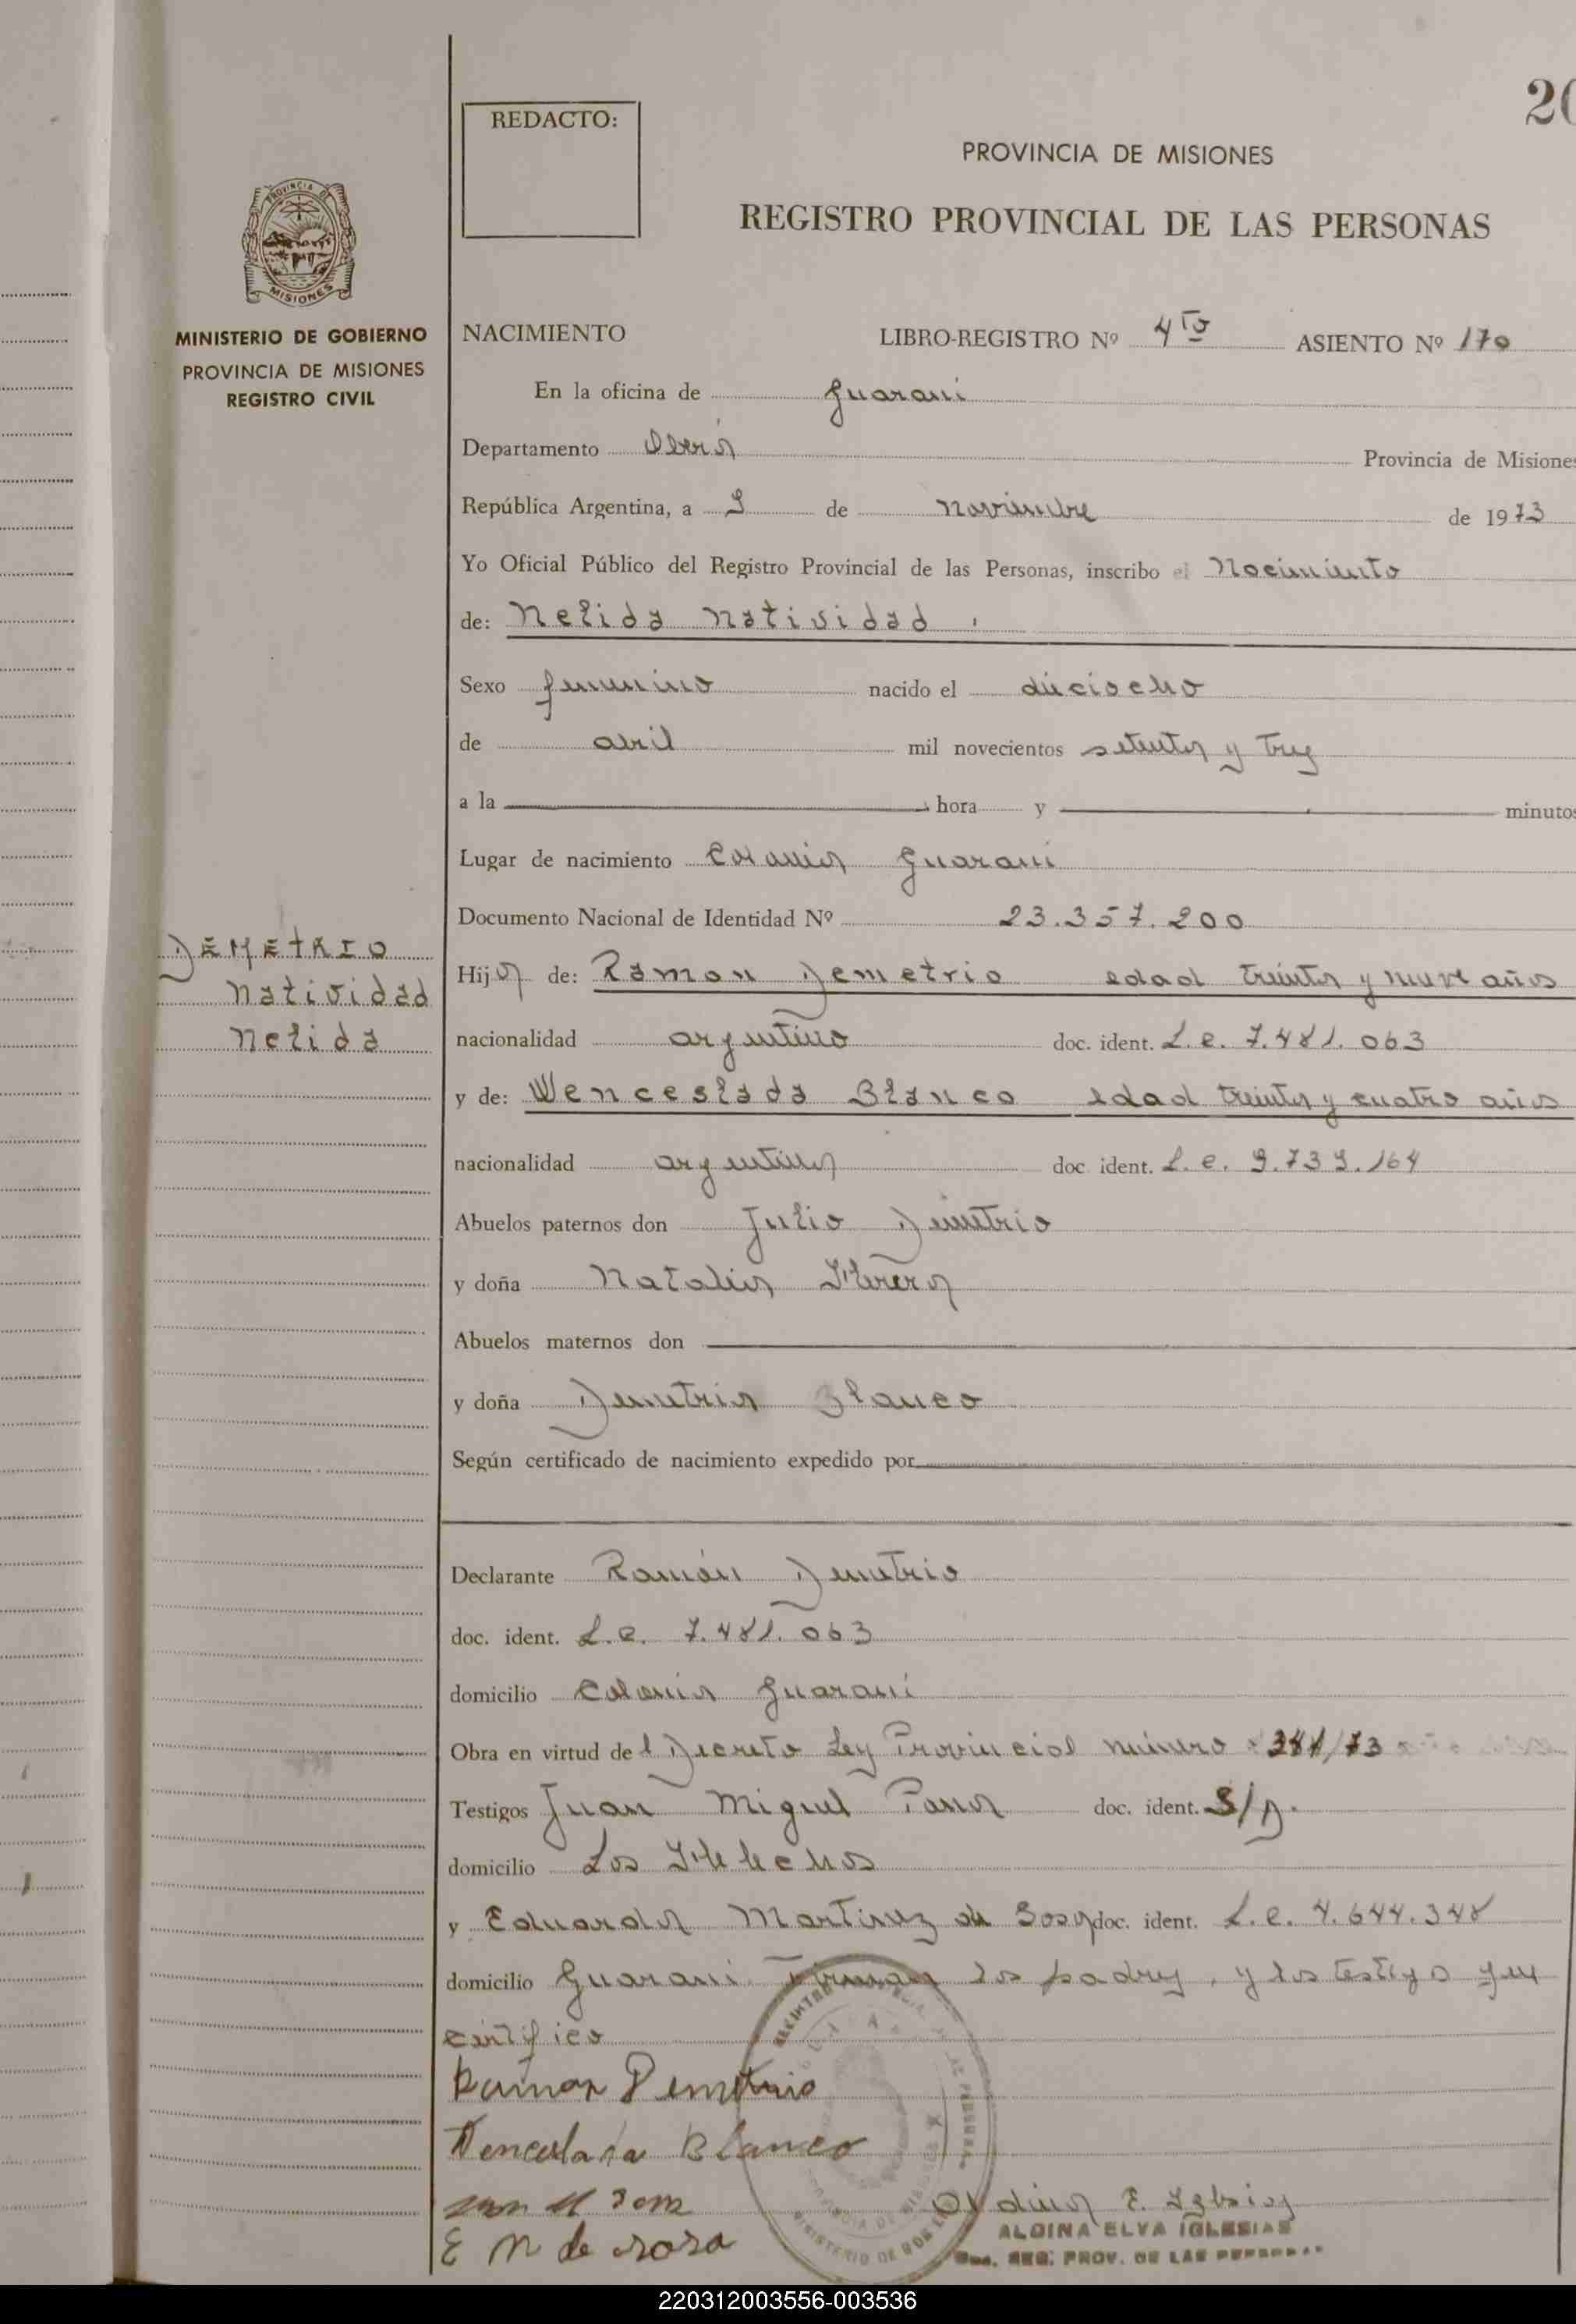 20
REDACTO:
PROVINCIA DE MISIONES
REGISTRO PROVINCIAL DE LAS PERSONAS
PROVINCIA DE
MISIONES
MINISTERIO DE GOBIERNO
PROVINCIA DE MISIONES
REGISTRO CIVIL
NACIMIENTO LIBRO-REGISTRO Nº 4to ASIENTO Nº 170
En la oficina de Guarani
Departamento Oberá Provincia de Misiones
República Argentina, a 9 de noviembre de 1973
Yo Oficial Público del Registro Provincial de las Personas, inscribo el Nacimiento
de: Nelida Natividad
Sexo femenino nacido el dieciocho
de abril mil novecientos setenta y tres
a la hora y minutos
Lugar de nacimiento Colonia Guarani
Documento Nacional de Identidad Nº 23.357.200
DEMETRIO
Natividad
Nelida
Hija de: Ramon Demetrio edad treinta y nueve años
nacionalidad argentino doc. ident. L.e. 7.481.063
y de: Wenceslada Blanco edad treinta y cuatro años
nacionalidad argentina doc ident. L.e. 9.739.164
Abuelos paternos don Julio Demetrio
y doña Natalia
Abuelos maternos don
y doña Demetria Blanco
Según certificado de nacimiento expedido por
Declarante Ramón Demetrio
doc. ident. L.e. 7.481.063
domicilio Colonia Guarani
Obra en virtud del Decreto Ley Provincial número 381/73
Testigos Juan Miguel doc. ident. S/D.
domicilio Los Helechos
y Eduarda Martinez de doc. ident. L.e. 4.644.348
domicilio Guarani Firman los padres, y los testigos que
certifico
Ramon Demetrio
Wenceslada Blanco
E M de
Aldina E. Iglesias
ALDINA ELVA IGLESIAS
REG. PROV. DE LAS PERSONAS
220312003556-003536